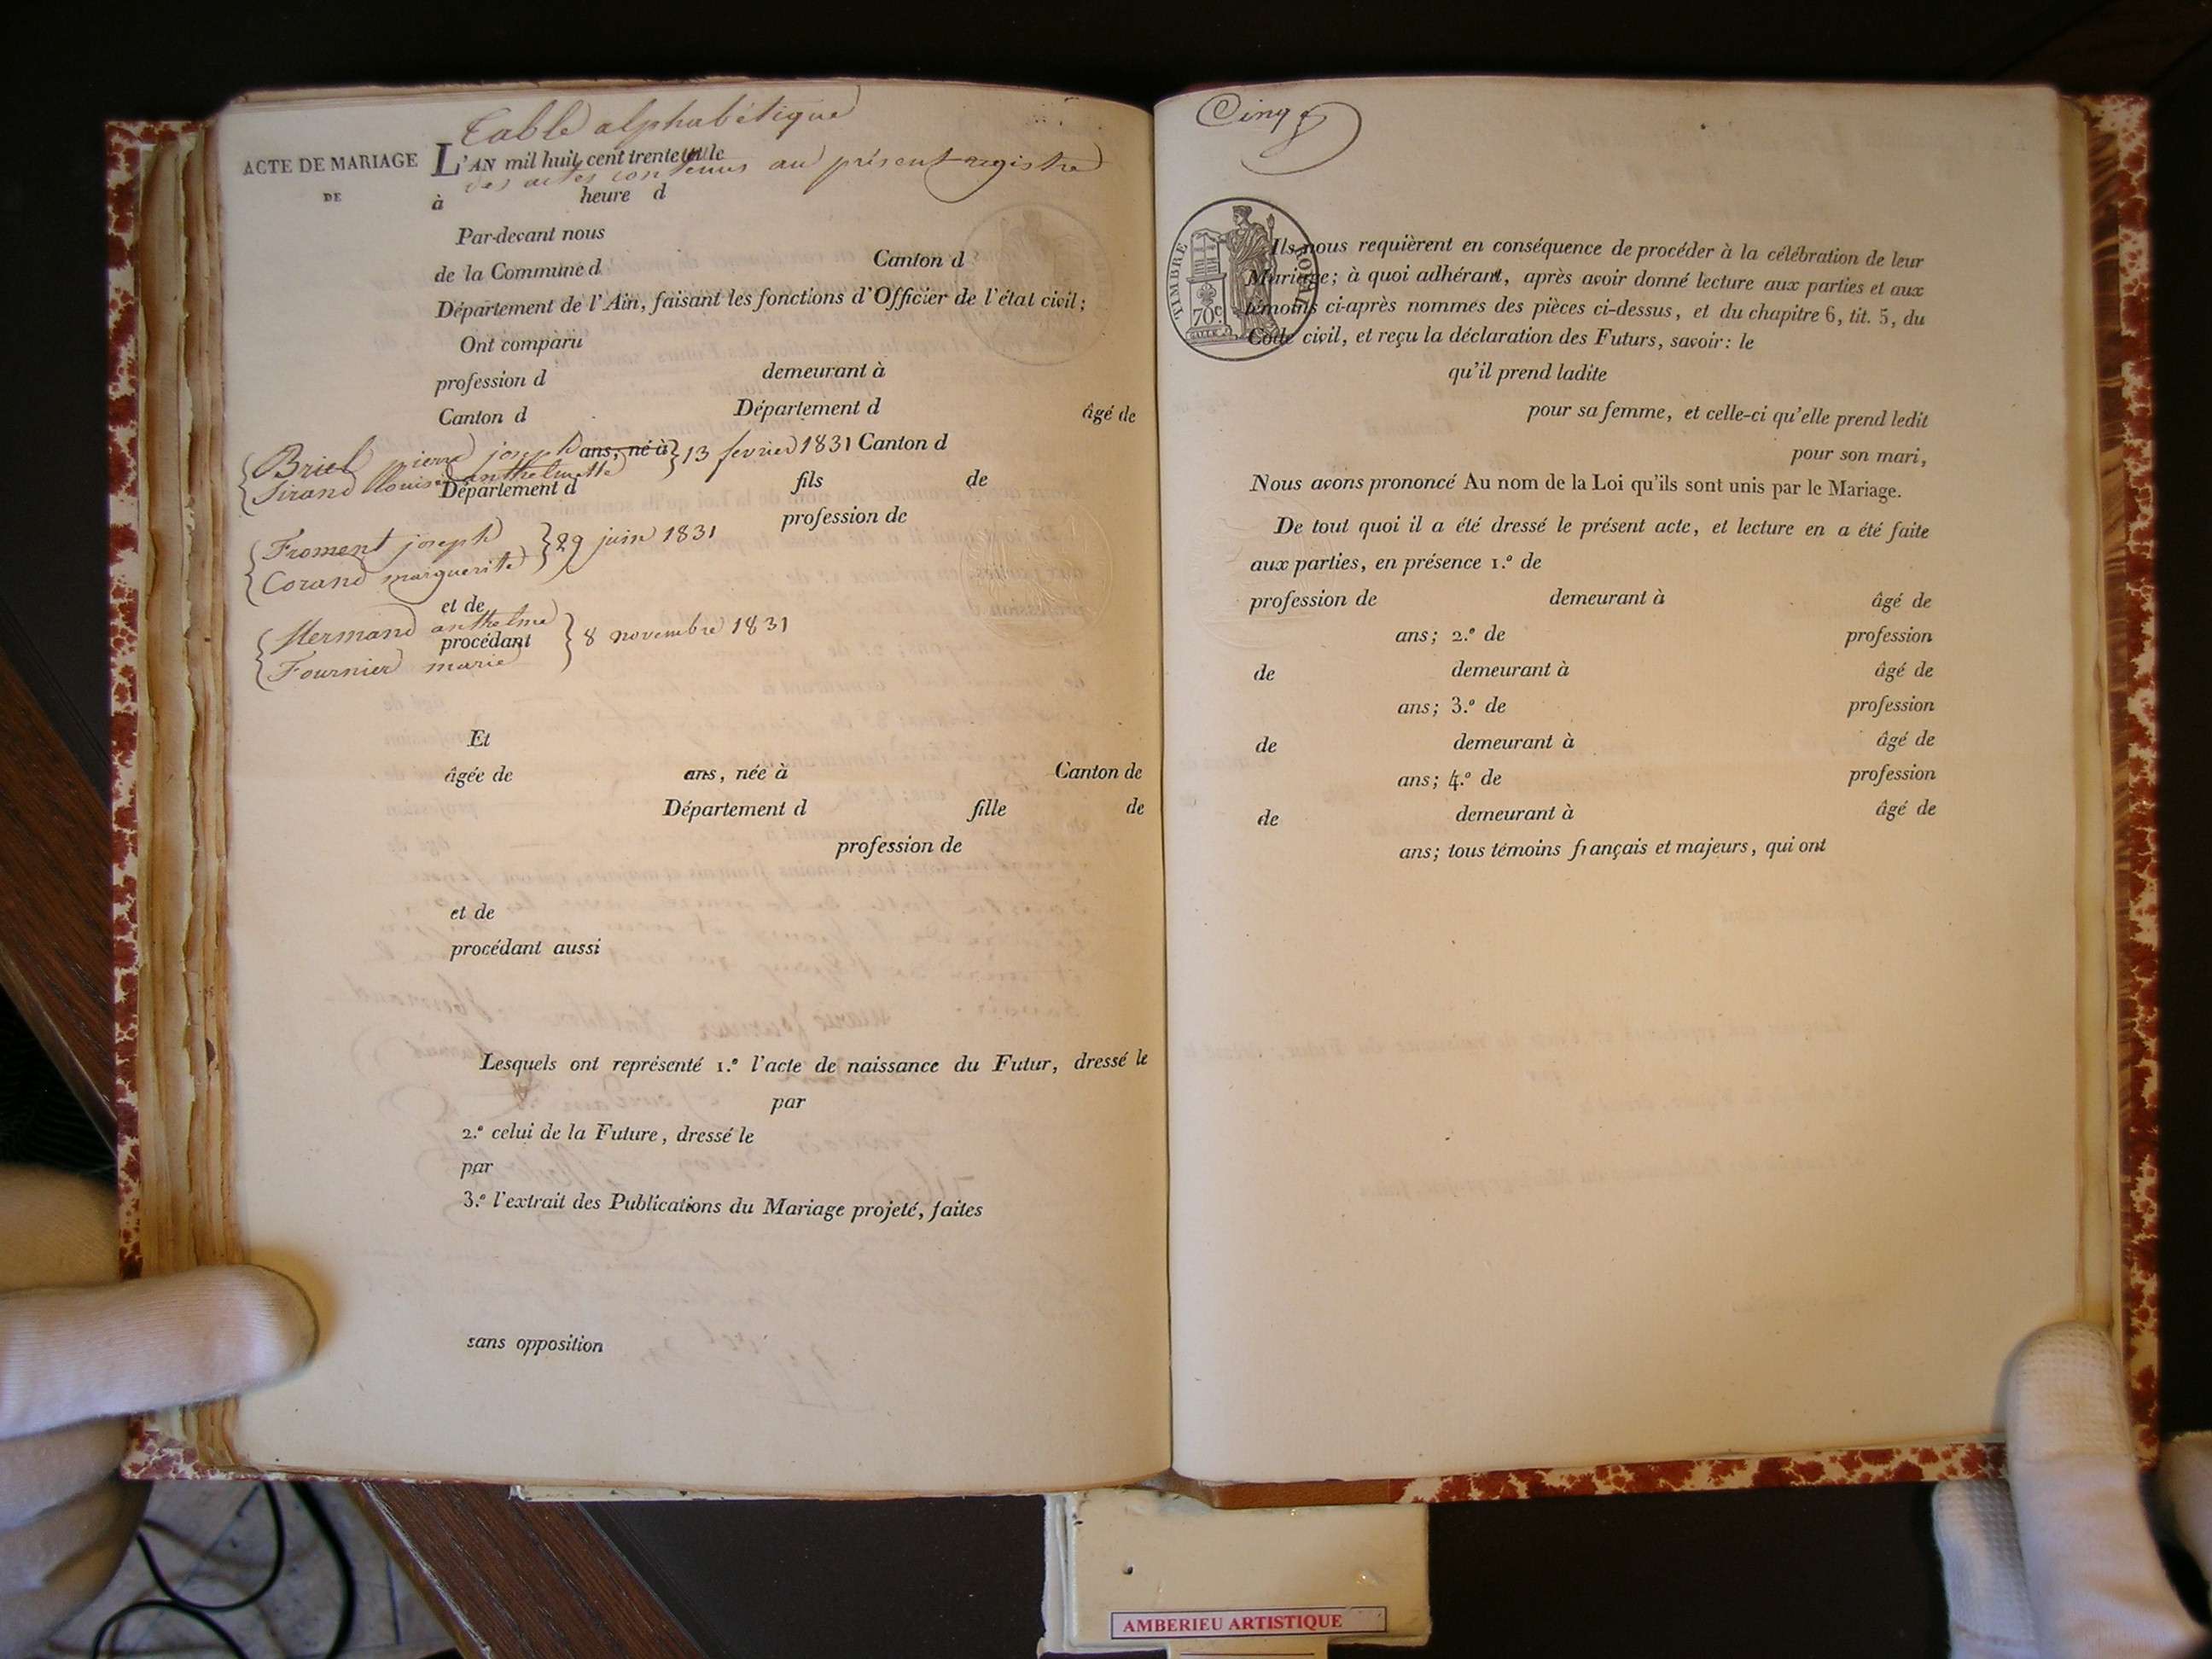 Table alphabétique
des actes contenus au présent registre
ACTE DE MARIAGE
DE
L'AN mil huit cent trente un le
à heure d
Par-devant nous
de la Commune d Canton d
Département de l'Ain, faisant les fonctions d'Officier de l'état civil;
Ont comparu
profession d demeurant à
Canton d Département d âgé de
ans, né à Canton d
Briel pierre joseph } 13 fevrier 1831
Sirand Louise anthelmette
Département d fils de
profession de
Froment joseph } 29 juin 1831
Corand marguerite
et de
Mermand anthelme } 8 novembre 1831
procédant
Fournier marie
Et
âgée de ans, née à Canton de
Département d fille de
profession de
et de
procédant aussi
Lesquels ont représenté 1.º l'acte de naissance du Futur, dressé le
par
2.º celui de la Future, dressé le
par
3.º l'extrait des Publications du Mariage projeté, faites
sans opposition
Cinq
TIMBRE ROYAL
70c.
Ils nous requièrent en conséquence de procéder à la célébration de leur
Mariage; à quoi adhérant, après avoir donné lecture aux parties et aux
témoins ci-après nommés des pièces ci-dessus, et du chapitre 6, tit. 5, du
Code civil, et reçu la déclaration des Futurs, savoir: le
qu'il prend ladite
pour sa femme, et celle-ci qu'elle prend ledit
pour son mari,
Nous avons prononcé Au nom de la Loi qu'ils sont unis par le Mariage.
De tout quoi il a été dressé le présent acte, et lecture en a été faite
aux parties, en présence 1.º de
profession de demeurant à âgé de
ans; 2.º de profession
de demeurant à âgé de
ans; 3.º de profession
de demeurant à âgé de
ans; 4.º de profession
de demeurant à âgé de
ans; tous témoins français et majeurs, qui ont
AMBERIEU ARTISTIQUE